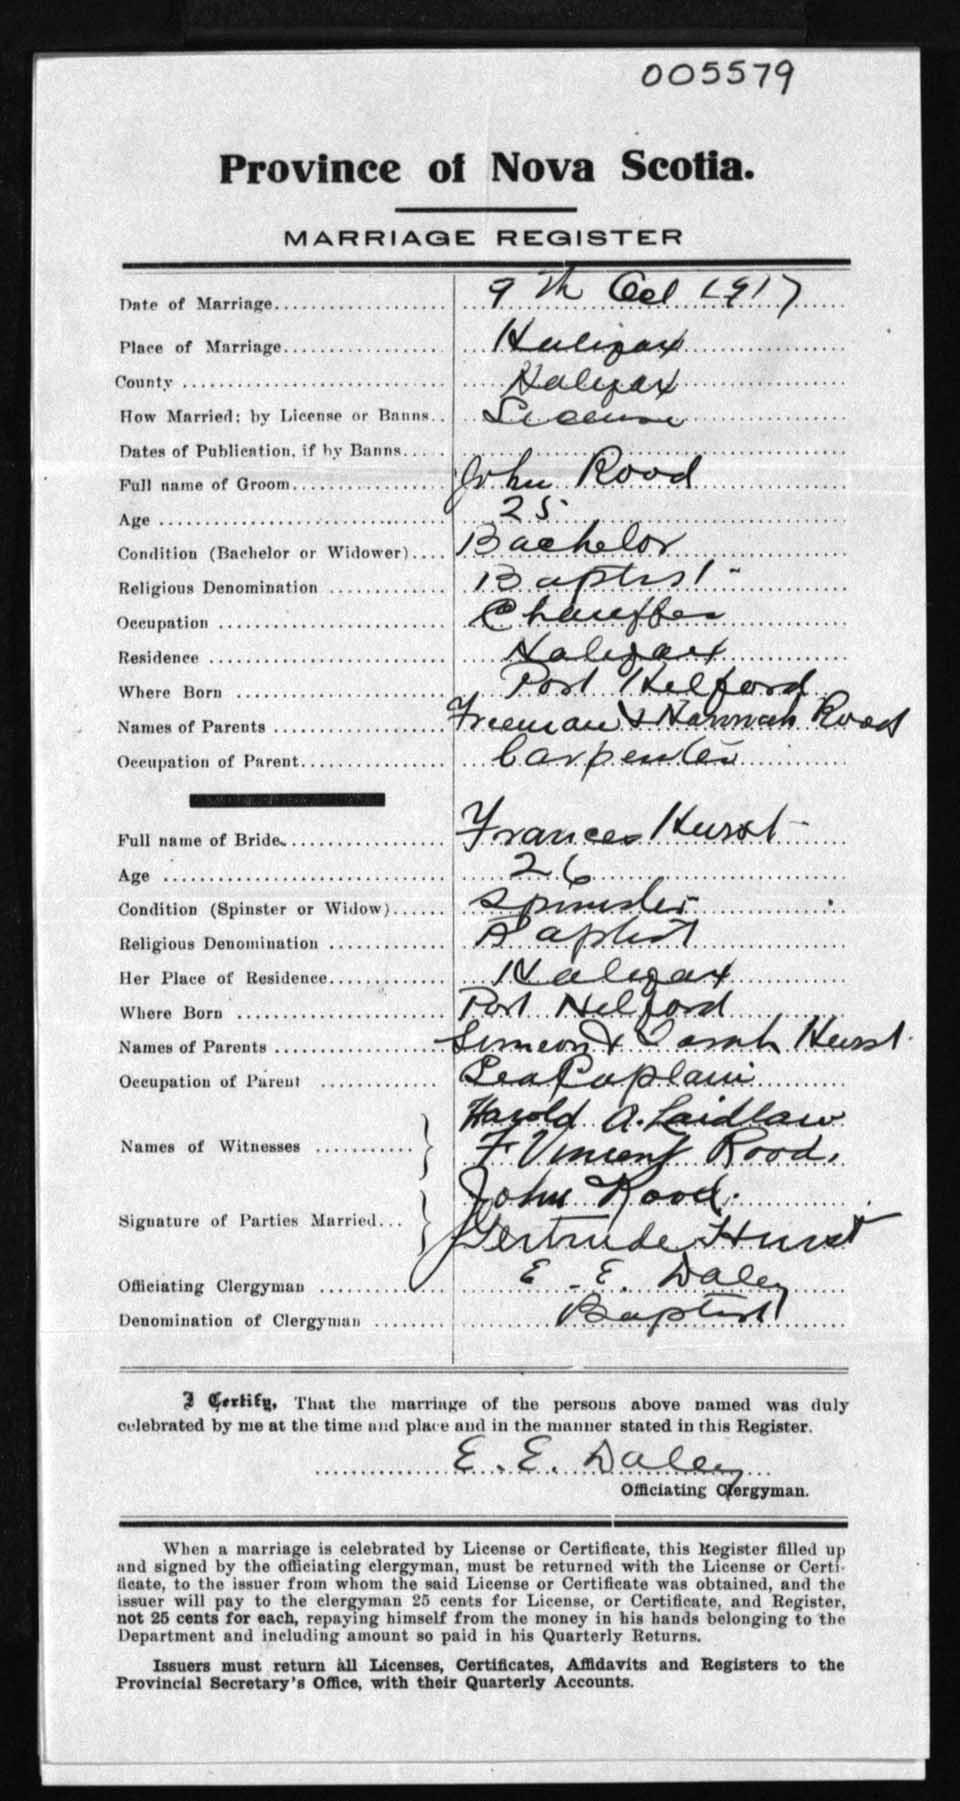 005579
Province of Nova Scotia.
MARRIAGE REGISTER
Date of Marriage 9th Oct 1917
Place of Marriage Halifax
County Halifax
How Married: by License or Banns License
Dates of Publication, if by Banns
Full name of Groom John Rood
Age 25
Condition (Bachelor or Widower) Bachelor
Religious Denomination Baptist
Occupation Chauffer
Residence Halifax
Where Born Port Hilford
Names of Parents Freeman & Hannah Rood
Occupation of Parent Carpenter
Full name of Bride Frances Hurst
Age 26
Condition (Spinster or Widow) Spinster
Religious Denomination Baptist
Her Place of Residence Halifax
Where Born Port Hilford
Names of Parents Simeon & Sarah Hurst
Occupation of Parent Sea Captain
Harold A. Laidlaw
Names of Witnesses F Vincent Rood.
John Rood.
Signature of Parties Married Gertrude Hurst
Officiating Clergyman E. E. Daley
Denomination of Clergyman Baptist
I Certify, That the marriage of the persons above named was duly
celebrated by me at the time and place and in the manner stated in this Register.
E. E. Daley
Officiating Clergyman.
When a marriage is celebrated by License or Certificate, this Register filled up
and signed by the officiating clergyman, must be returned with the License or Certi-
ficate, to the issuer from whom the said License or Certificate was obtained, and the
issuer will pay to the clergyman 25 cents for License, or Certificate, and Register,
not 25 cents for each, repaying himself from the money in his hands belonging to the
Department and including amount so paid in his Quarterly Returns.
Issuers must return all Licenses, Certificates, Affidavits and Registers to the
Provincial Secretary's Office, with their Quarterly Accounts.